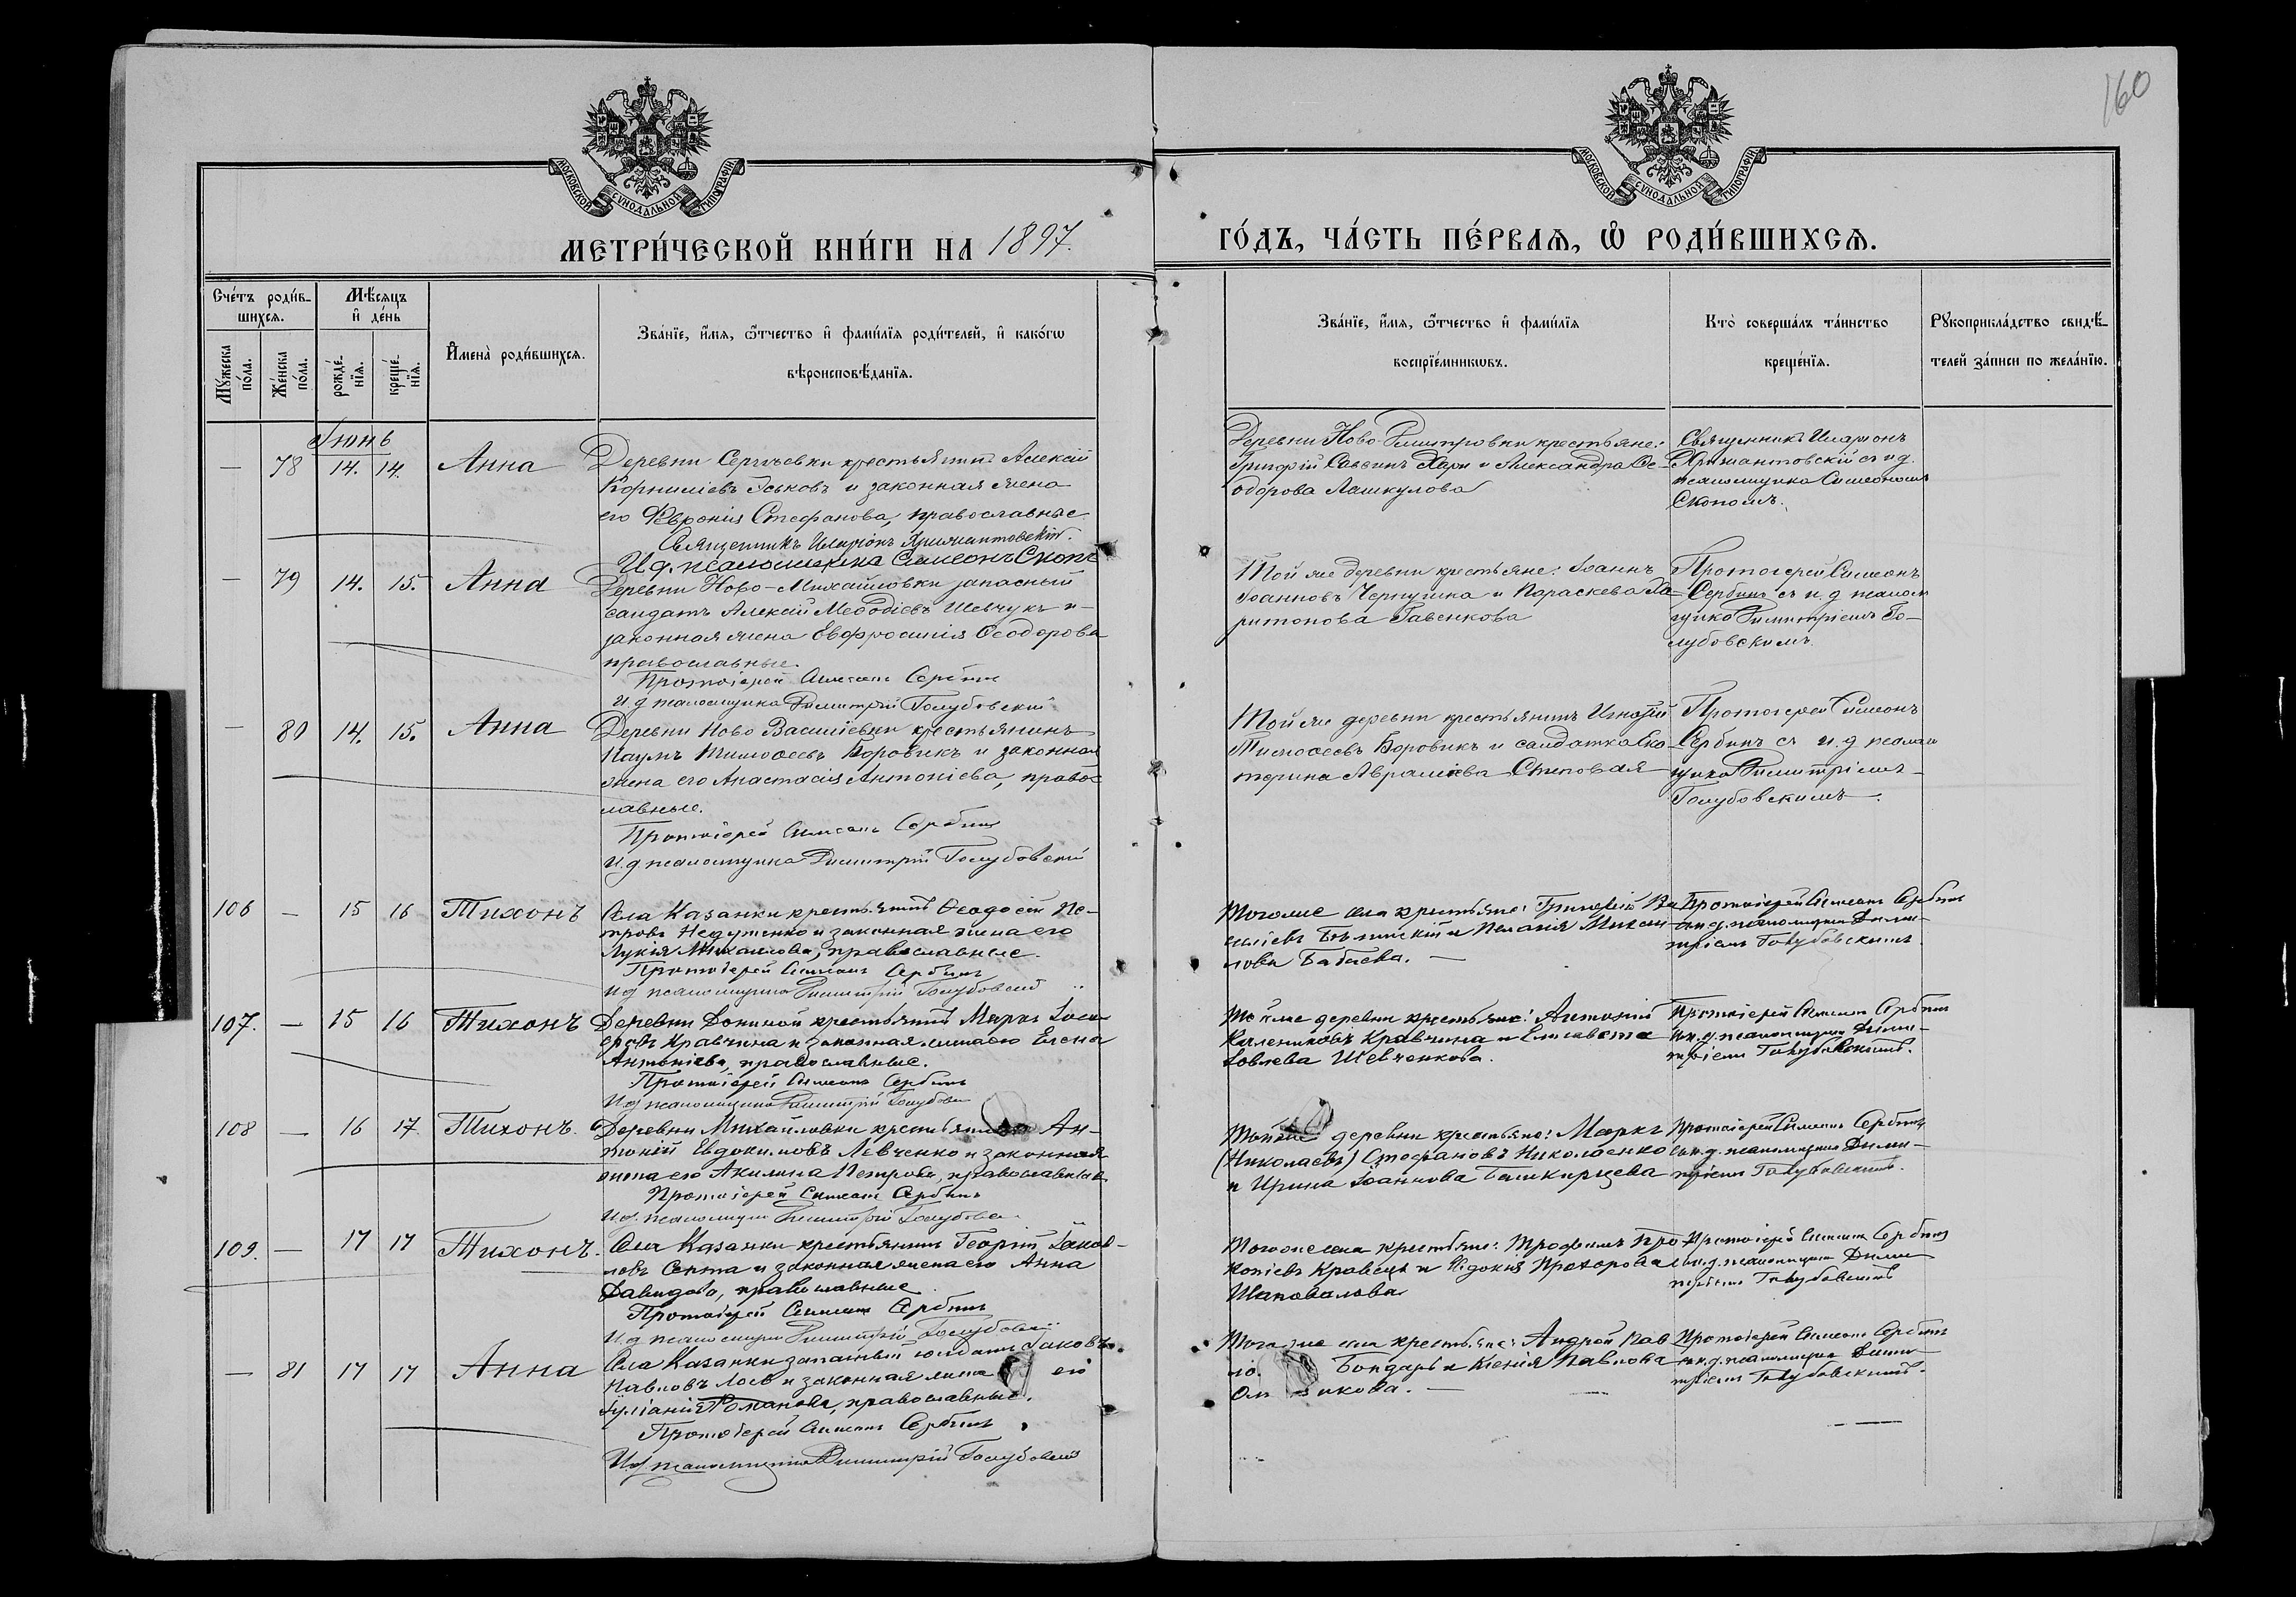 160
МОСКОВСКОЙ СУНОДАЛЬНОЙ ТИПОГРАФІИ
МОСКОВСКОЙ СУНОДАЛЬНОЙ ТИПОГРАФІИ
МЕТРИ́ЧЕСКОЙ КНИ́ГИ НА 1897.
ГО́ДЪ, ЧА́СТЬ ПЕ́РВАѦ, Ѡ҆ РОДИ́ВШИХСѦ.
Счéтъ роди́в-
шихсѧ.
Мѣ́сѧцъ
и҆ дéнь
Мꙋ́жеска
по́ла.
Жéнска
по́ла.
рождé-
нїѧ.
крещé-
нїѧ.
И҆мена̀ роди́вшихсѧ.
Зва́нїе, и҆́мѧ, ѻ҆́тчество и҆ фами́лїѧ роди́телей, и҆ како́гѡ
вѣроисповѣ́данїѧ.
Зва́нїе, и҆́мѧ, ѻ҆́тчество и҆ фами́лїѧ
воспрїéмникѡвъ.
Кто̀ совершáлъ тáинство
крещéнїѧ.
Рꙋкоприклáдство свидѣ́-
телей зáписи по желáнїю.
Іюнь
— 78 14. 14. Анна
Деревни Сергѣевки крестьянинъ Алексій
Корниліевъ Еськовъ и законная жена
его Февронія Стефанова, православные
Священникъ Иларіонъ
И. д. псаломщика Симеонъ Скопъ
Деревни Ново-Димитровки крестьяне:
Григорій Саввинъ Хари и Александра Ѳе-
одорова Лашкулова
Священникъ Иларіонъ
съ и д.
псаломщика Симеономъ
Скопомъ.
— 79 14. 15. Анна
Деревни Ново-Михайловки запасный
солдатъ Алексій Меѳодіевъ Шевчукъ и
законная жена Евфросинія Ѳеодорова
православные.
Протоіерей Симеонъ Сербинъ
И. д псаломщика Димитрій Голубовскій
Той же деревни крестьяне: Іоаннъ
Іоанновъ Чернушка и Параскева Ха-
ритонова Гавенкова
Протоіерей Симеонъ
Сербинъ съ и. д псалом
щика Димитріемъ Го-
лубовскимъ.
— 80 14. 15. Анна
Деревни Ново Василіевки крестьянинъ
Наумъ Тимоѳеевъ Боровикъ и законная
жена его Анастасія Антоніева, правос
лавные.
Протоіерей Симеонъ Сербинъ
И. д псаломщика Димитрій Голубовскій
Той же деревни крестьянинъ Игнатій
Тимоѳеевъ Боровикъ и солдатка Ека-
терина Авраміева Степовая
Протоіерей Симеонъ
Сербинъ съ и. д псалом
щика Димитріемъ
Голубовскимъ.
106 — 15 16 Тихонъ
Села Казанки крестьянинъ Ѳеодосій Пе-
тровъ Недуженко и законная жена его
Лукія Михаилова, православные.
Протоіерей Симеонъ Сербинъ
И д псаломщика Димитрій Голубовскій
Того же села крестьяне: Григорій Ва
силіевъ и Пелагія Михаи
лова Бабаева. —
Протоіерей Симеонъ Сербинъ
съ и. д. псаломщика Дими-
тріемъ Голубовскимъ.
107. — 15 16 Тихонъ
Деревни Дониной крестьянинъ Маркъ Іоси
фовъ Кравчина и законная жена его Елена
Антоніева, православные.
Протоіерей Симеонъ Сербинъ
И д псаломщика Димитрій Голубовск
Той же деревни крестьяне: Антоній
Каленниковъ Кравчина и Елисавета
Іовлева Шевченкова.
Протоіерей Симеонъ Сербинъ
съ и. д. псаломщика Дими-
тріемъ Голубовскимъ.
108 — 16 17 Тихонъ.
Деревни Михайловки крестьянинъ Ан-
тоній Евдокимовъ Левченко и законная
жена его Акилина Петрова, православные
Протоіерей Симеонъ Сербинъ
И д. псаломщика Димитрій Голубовск
Той же деревни крестьяне: Маркъ
(Николаевъ) Стефановъ Николаенко
и Ирина Іоаннова Башкирцева
Протоіерей Симеонъ Сербинъ
съ и. д. псаломщика Дими-
тріемъ Голубовскимъ.
109. — 17 17 Тихонъ.
Села Казанки крестьянинъ Георгій Іаков-
левъ Септа и законная жена его Анна
Давидова, православные
Протоіерей Симеонъ Сербинъ
И д псаломщика Димитрій Голубовскій
Того же села крестьяне: Трофимъ Про-
копіевъ Кравецъ и Евдокія Прохорова
Шаповалова
Протоіерей Симеонъ Сербинъ
съ и. д. псаломщика Дими
тріемъ Голубовскимъ
— 81 17 17 Анна
Села Казанки запасный солдатъ Іаковъ
Павловъ Лоев и законная жена его
Іуліанія Романова, православные.
Протоіерей Симеонъ Сербинъ
И. д. псаломщика Димитрій Голубовскій
Того же села крестьяне: Андрей Пав
ло. Бондарь и Ксенія Павлова
икова. —
Протоіерей Симеонъ Сербинъ
съ и. д. псаломщика Дими
тріемъ Голубовскимъ.